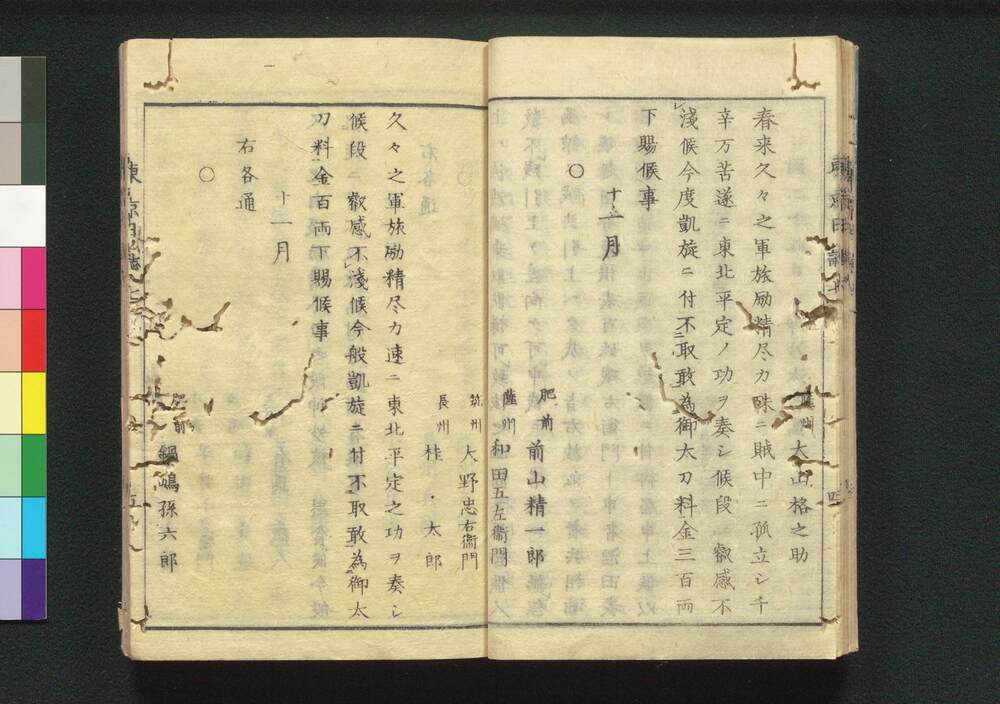 薩州 大山格之助
春来久々之軍旅励精尽力殊ニ賊中ニ孤立シ千
辛万苦遂ニ東北平定ノ功ヲ奏シ候段 叡感不
浅候今度凱旋ニ付不取敢為御太刀料金三百両
下賜候事
十一月
○
肥前 前山精一郎
薩州 和田五左衛門
筑州 大野忠右衛門
長州 桂太郎
久々之軍旅励精尽力速ニ東北平定之功ヲ奏シ
候段ニ 叡感不浅候今般凱旋ニ付不取敢為御太
刀料金百両下賜候事
十一月
右各通
○
肥前 鍋嶋孫六郎